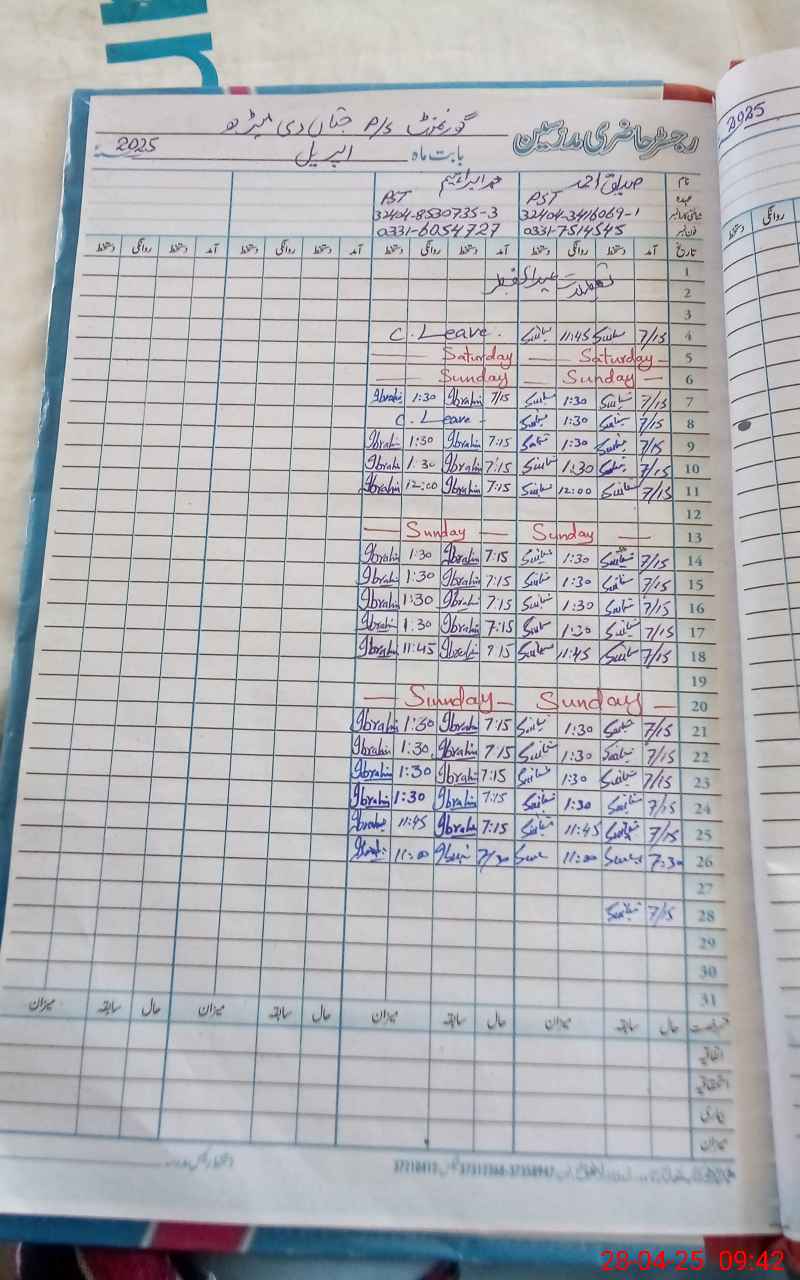 رجسٹر حاضری مدرسین گورنمنٹ P/S جتاں دی
بابت ماہ اپریل 2025
2025
نام صدیق احمد محمد ابراہیم
عہدہ PST PST
شناختی کارڈ نمبر 32404-3416069-1 32404-8530735-3
فون نمبر 0331-7514545 0331-6054727
تاریخ آمد دستخط روانگی دستخط آمد دستخط روانگی دستخط آمد دستخط روانگی دستخط آمد دستخط روانگی دستخط
روانگی دستخط
1
2 تعطیلات عیدالفطر
3
4 7/15 11:45 C. Leave.
5 Saturday Saturday
6 Sunday Sunday
7 7/15 1:30 7/15 Ibrahim 1:30 Ibrahim
8 7/15 1:30 C. Leave -
9 7/15 1:30 7:15 Ibrahim 1:30 Ibrahim
10 7/15 1:30 7:15 Ibrahim 1:30 Ibrahim
11 7/15 12:00 7:15 Ibrahim 12:00 Ibrahim
12
13 Sunday Sunday
14 7/15 1:30 7:15 Ibrahim 1:30 Ibrahim
15 7/15 1:30 7:15 Ibrahim 1:30 Ibrahim
16 7/15 1:30 7:15 Ibrahim 1:30 Ibrahim
17 7/15 1:30 7:15 Ibrahim 1:30 Ibrahim
18 7/15 11:45 7:15 Ibrahim 11:45 Ibrahim
19
20 Sunday Sunday
21 7/15 1:30 7:15 Ibrahim 1:30 Ibrahim
22 7/15 1:30 7:15 Ibrahim 1:30 Ibrahim
23 7/15 1:30 7:15 Ibrahim 1:30 Ibrahim
24 7/15 1:30 7:15 Ibrahim 1:30 Ibrahim
25 7/15 11:45 7:15 Ibrahim 11:45 Ibrahim
26 7:30 11:00 7/30 11:00
27
28 7/15
29
30
31
رخصت حال سابقہ میزان حال سابقہ میزان حال سابقہ میزان حال سابقہ میزان
اتفاقیہ
استحقاقیہ
بیماری
میزان
28-04-25 09:42